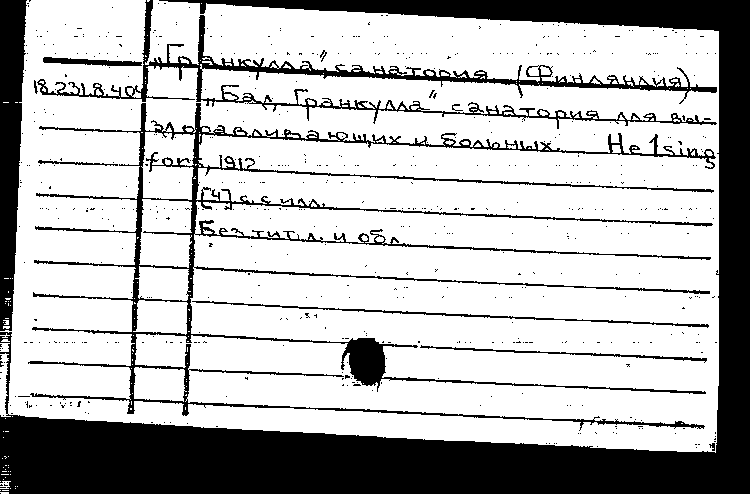 „Гранкулла", санатория (Финляндия).
18.231.8.404
„Бад Гранкулла", санатория для вы-
здоравливающих и больных. Helsing
fors, 1912
[4] с. с илл.
Без тит. л. и обл.